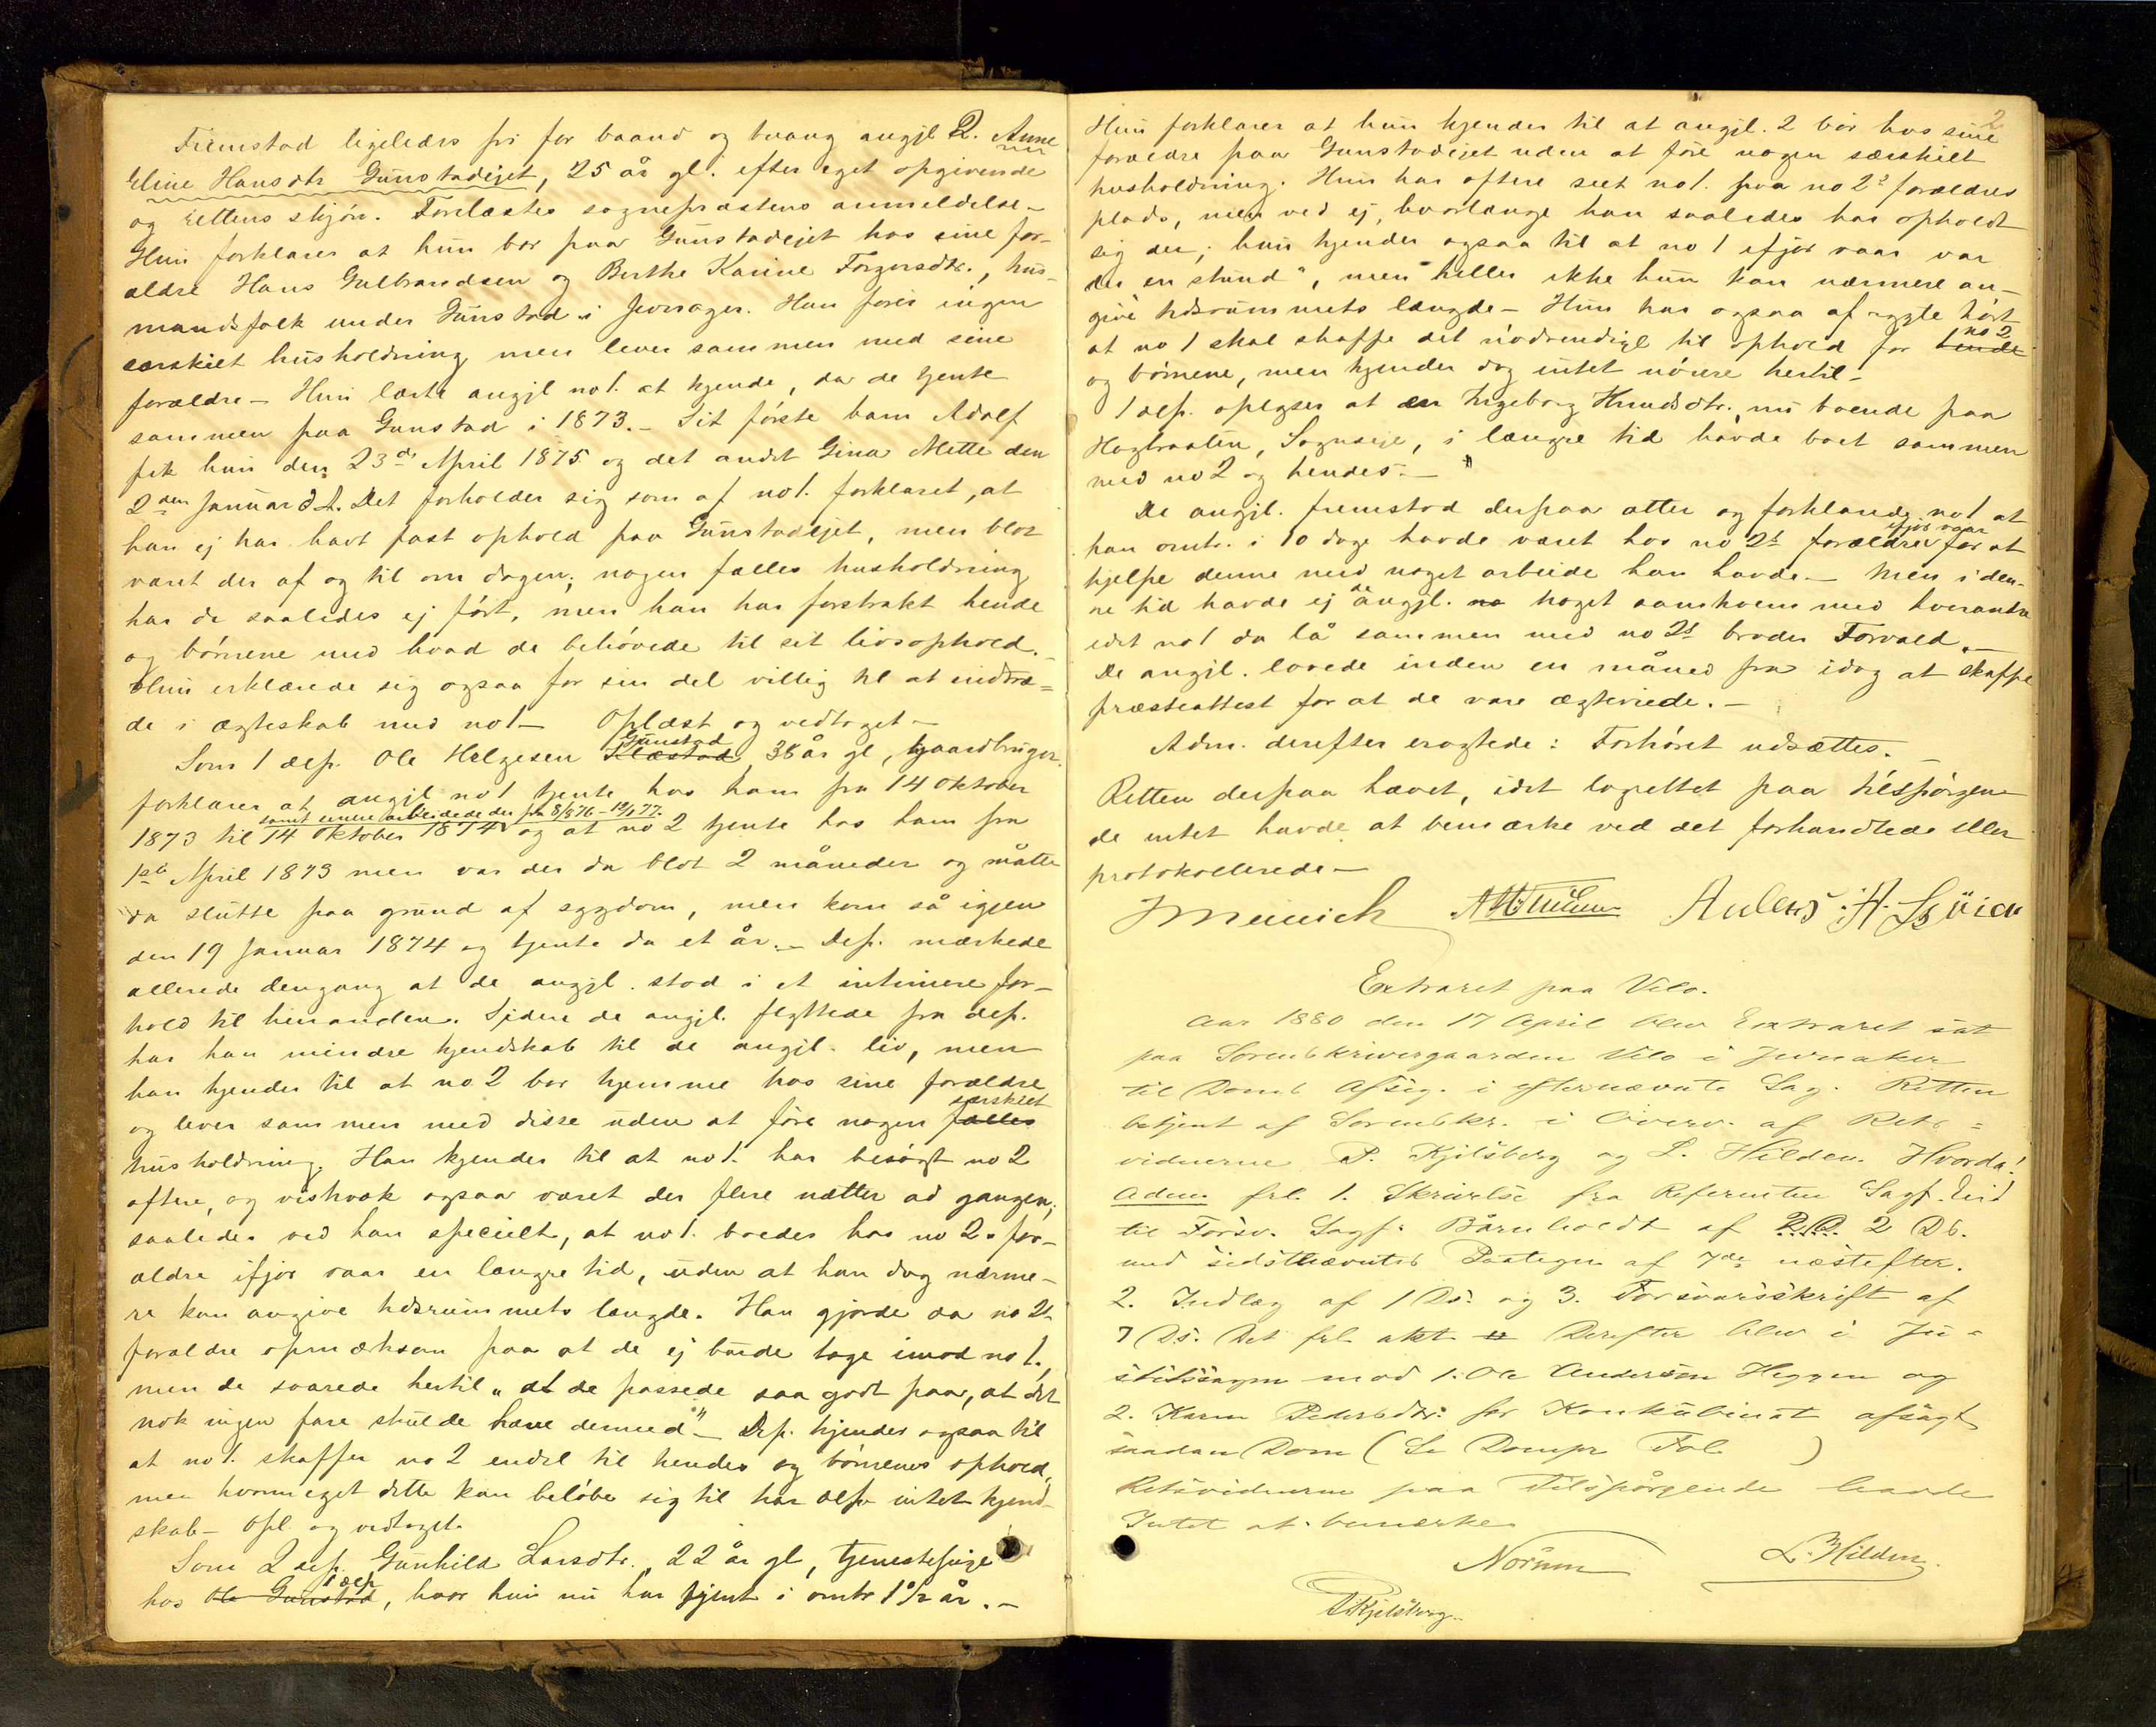 Fremstod ligeledes fri for baand og tvang angjl 2. Anne
Eline Hansdtr Gunstadejet, 25 år gl. efter eget opgivende
og rettens skjön. Forelæstes sogneprestens anmeldelse –
Hun forklarer at hun bor paa Gunstadejet hos sine for-
ældre Hans Gulbrandsen og Berthe Karine Torgersdtr., hus-
mandsfolk under Gunstad i Jevnager. Hun förer ingen
særskilt husholdning men lever sammen med sine
forældre – Hun lærte angjl no 1. at kjende, da de tjente
sammen paa Gunstad i 1873. – Sit förste barn Adolf
fik hun den 23de April 1875 og det andet Gina Mette den
2den Januar d.A. Det forholder sig som af no 1. forklaret, at
han ej har havt fast ophold paa Gunstadejet, men blot
været der af og til om dagen; nogen fælles husholdning
har de saaledes ej fört, men han har forstrakt hende
og börnene med hvad de behövede til sit livsophold. –
Hun erklærede sig ogsaa for sin del villig til at indtræ-
de i ægteskab med no 1 – Oplæst og vedtaget –
Gunstad
Som 1 dep. Ole Helgesen Klæstad, 38 år gl, gaardbruger.
forklarer at angjl no 1 tjente hos ham fra 14 Oktober
samt senere arbeidede der fra 8/8 76 – 19/1 77.
1873 til 14 Oktober 1874 og at no 2 tjente hos ham fra
1ste April 1873 men var der da blot 2 måneder og måtte
da slutte paa grund af sygdom, men kom så igjen
den 19 Januar 1874 og tjente da et år. – Dep. mærkede
allerede dengang at de angjl. stod i et intimere for-
hold til hinanden. Siden de angjl. flyttede fra dep.
har han mindre kjendskab til de angjl. liv, men
han kjender til at no 2 bor hjemme hos sine forældre
særskilt
og lever sammen med disse uden at före nogen fælles
husholdning. Han kjender til at no 1. har besögt no 2
oftere, og vistnok ogsaa været der flere nætter ad gangen;
saaledes ved han specielt, at no 1. boede hos no 2s for-
ældre ifjor vaar en længre tid, uden at han dog nærme-
re kan angive tidsrummets længde. Han gjorde da no 2s
forældre opmærksom paa at de ej burde tage imod no 1.,
men de svarede hertil „at de passede saa godt paa, at det
nok ingen fare skulde have dermed“ – Dep. kjender ogsaa til
at no 1. skaffer no 2 endel til hendes og börnenes ophold,
men hvormeget dette kan belöbe sig til har dep. intet kjend-
skab – Opl. og vedtaget.
Som 2 dep. Gunhild Larsdtr. 22 år gl, tjenestepige
1 dep
hos Ole Gunstad, hvor hun nu har tjent i omtr 1½ år. –
2
Hun forklarer at hun kjender til at angjl. 2 bor hos sine
forældre paa Gunstadejet uden at före nogen særskilt
husholdning. Hun har oftere seet no 1. paa no 2s forældres
plads, men ved ej, hvorlænge han saaledes har opholdt
sig der; hun kjender ogsaa til at no 1 ifjor vaar var
der en stund“, men heller ikke hun kan nærmere an-
give tidsrummets længde – Hun har ogsaa af rygte hört
no 2
at no 1 skal skaffe det nödvendige til ophold for hende
og börnene, men kjender dog intet nöiere hertil –
1 dep. oplyser at en Ingeborg Knudsdtr., nu boende paa
Hagbraaten, Sognseje, i længre tid havde boet sammen
med no 2 og hendes. –
De angjl. fremstod derpaa atter og forklarede no 1 at
ifjor vaar
han omtr. i 10 dage havde været hos no 2s forældre for at
hjelpe denne med noget arbeide han havde. – Men i den-
ne tid havde ej de angjl. no noget samkvem med hverandre
idet no 1 da lå sammen med no 2s broder Torvald. –
De angjl. lovede inden en måned fra idag at skaffe
præsteattest for at de vare ægteviede. –
Adm. derefter eragtede: Forhöret udsættes. –
Retten derpaa hævet, idet lagrettet paa tilspörgen-
de intet havde at bemærke ved det forhandlede eller
protokollerede –
JMunich Anders H.
Extraret paa Velo.
Aar 1880 den 17 April blev Extraret sat
paa Sorenskrivergaarden Velo i Jevnaker
til Doms Afsig. i efternævnte Sag. Retten
betjent af Sorenskr. i Overv. af Rets-
vidnerne P. Kjilsberg og L. Hilden. Hvorda!
Adm. frl. 1. Skrivelse fra Referenten Sagf. Eid
til Forsv. Sagf. Börnholdt af 2 D. 2 Ds.
med sidstnævntes Paategn af 7de næstefter.
2. Indlæg af 1 Ds. og 3. Forsvarsskrift af
7 Ds. Det frl. akt. Derefter blev i Ju-
stitssagen mod 1. Ole Andersen Heggen og
2. Karen Pedersdtr. for Konkubinat afsagt
saadan Dom (Se Dompr Fol )
Retsvidnerne paa Tilspörgende havde
Intet at bemærke
Norum L. Hilden.
P. Kjelsberg